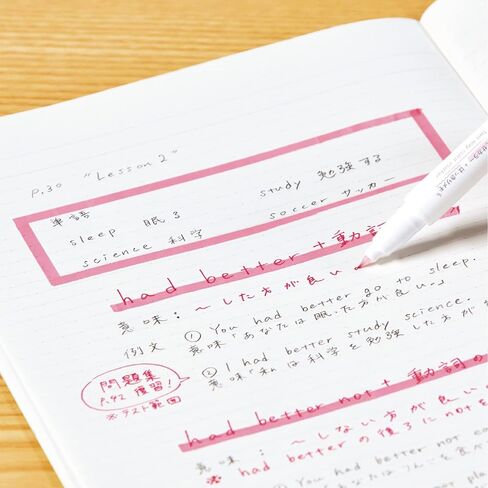 P.30 "Lesson 2"
単語
sleep 眠る study 勉強する
science 科学 soccer サッカー
had better + 動詞
意味：〜した方が良い。
例文 ① You had better go to sleep.
意味「あなたは眠った方が良い。」
② I had better study science.
意味「私は科学を勉強した方が
問題集
P.92 復習！
※テスト範囲
had better not + 動詞の
意味：〜しない方が良い
※ had better の後ろに not を
① You had better not